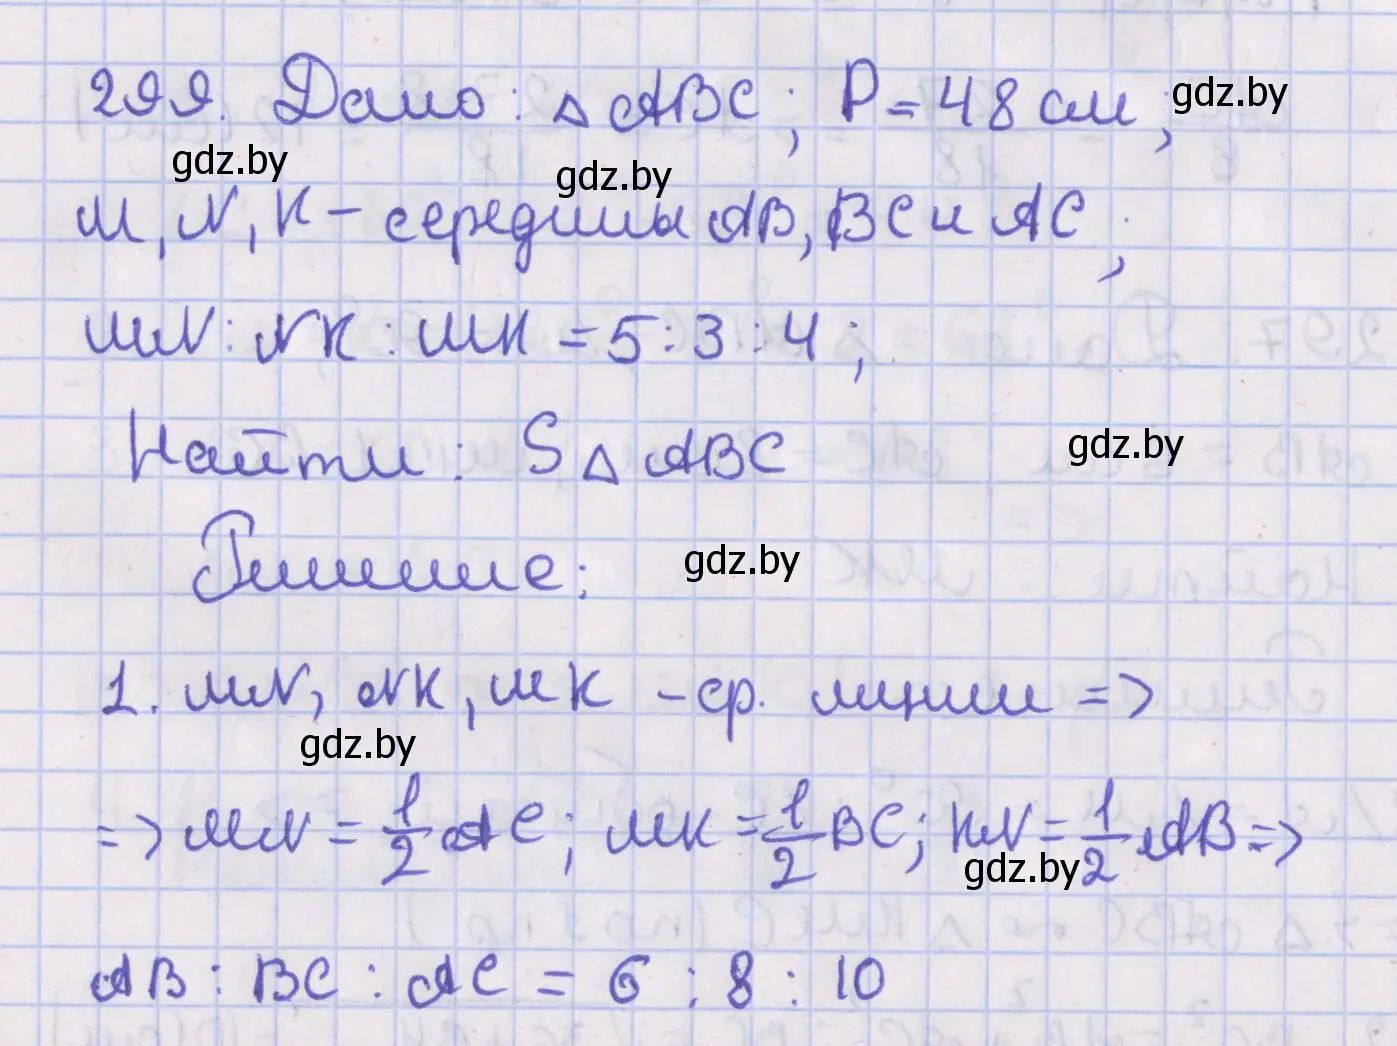 299. Дано: △ ABC; P = 48 см;
M, N, K – середины AB, BC и AC;
MN : NK : MK = 5 : 3 : 4;
Найти: S △ ABC
Решение:
1. MN, NK, MK – ср. линии =>
=> MN = 1/2 AC; MK = 1/2 BC; KN = 1/2 AB =>
AB : BC : AC = 6 : 8 : 10
gdz.by
gdz.by
gdz.by
gdz.by
gdz.by
gdz.by
gdz.by